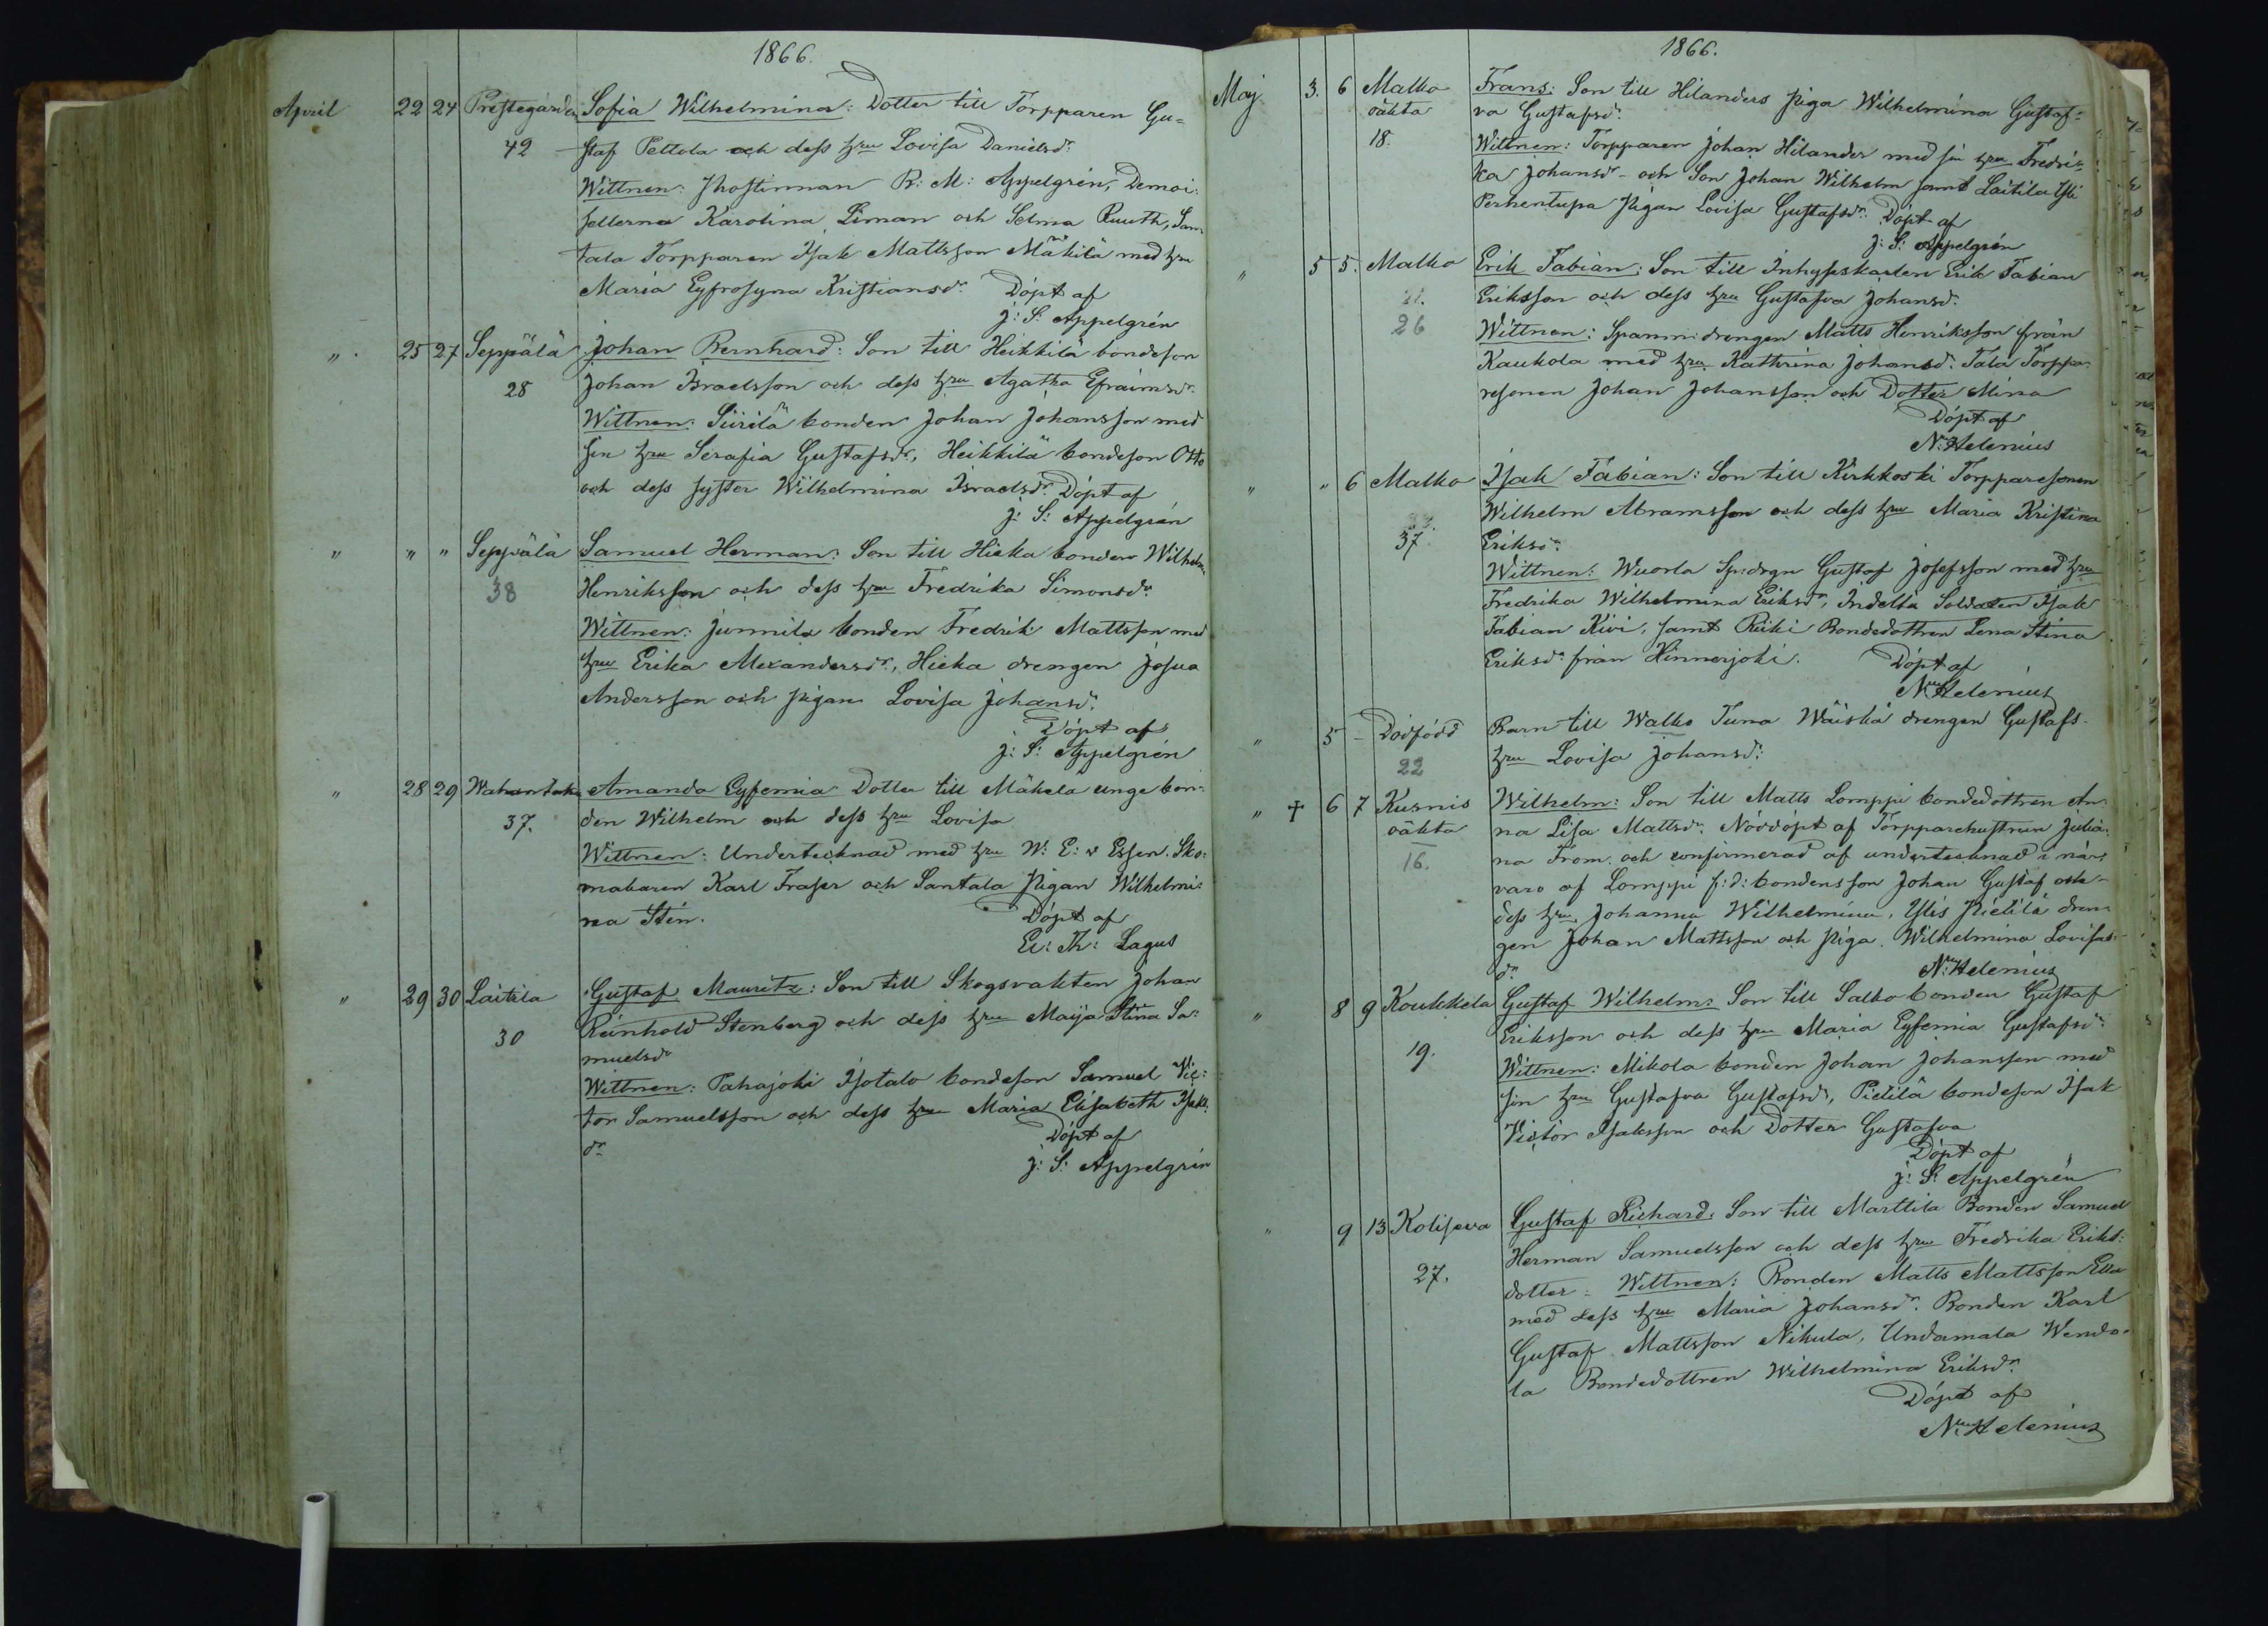 1866.
April 22 24 Prestegården Sofia Wilhelmina: Dotter till Torpparen Gu=
42 staf Pettola och dess hru Lovisa Danielsdr.
Wittnen: Prostinnan B: M: Appelgrén, Demoi:
sellerna Karolina Liman och Selma Ruuth, San:
tala Torpparen Isak Mattsson Mäkilä med hru
Maria Eyfrosyna Kristiansdr. Döpt af
J: S: Appelgrén
" 25 27 Seppälä Johan Bernhard: Son till Heikkilä bondeson
28 Johan Israelsson och dess hru Agatha Efraimsdr.
Wittnen: Siirilä bonden Johan Johansson med
sin hru Serafia Gustafsdr, Heikkilä bondeson Otto
och dess syster Wilhelmina Israelsdr. Döpt af
J: S: Appelgrén
" " " Seppälä Samuel Herman: Son till Hieka bonden Wilhelm
38 Henriksson och dess hru Fredrika Simonsdr.
Wittnen: Junnila bonden Fredrik Mattsson med
hru Erika Alexandersdr, Hieka drengen Josua
Andersson och pigan Lovisa Johansdr.
Döpt af
J: S: Appelgrén
" 28 29 Wahantaka Amanda Eyfemia Dotter till Mäkelä unge bon:
37. den Wilhelm och dess hru Lovisa
Wittnen: Undertecknad med hru W: E: v Essen. Sko:
makaren Karl Fraser och Santala Pigan Wilhelmi:
na Stén. Döpt af
El: Th: Lagus
" 29 30 Laitila Gustaf Mauritz: Son till Skogsvakten Johan
30 Reinhold Stenberg och dess hru Maija Stina Sa:
muelsdr
Wittnen: Pahajoki Isotalo bondeson Samuel Vic:
tor Samuelsson och dess hru Maria Elisabeth Isaks
dr. Döpt af
J: S: Appelgrén
1866.
Maj 3. 6 Malko Frans: Son till Hilanders piga Wilhelmina Gustaf:
oäkta va Gustafsdr.
18. Wittnen: Torpparen Johan Hilander med sin hru Fredri:
ka Johansdr och Son Johan Wilhelm samt Laitila Yli
Perhentupa Pigan Lovisa Gustafsdr. Döpt af
J: S: Appelgrén
" 5 5. Malko Erik Fabian: Son till Inhyseskarlen Erik Fabian
21. Eriksson och dess hru Gustafva Johansdr.
26 Wittnen: Spanm:drengen Matts Henriksson från
Kaukola med hru Kathrina Johansdr. Tala Torppa:
resonen Johan Johansson och Dotter Mina
Döpt af
N: Helenius
" " 6 Malko Isak Fabian: Son till Kirkkoski Torpparesonen
Wilhelm Abramsson och dess hru Maria Kristina
37. Eriksdr.
Wittnen: Wuorla Sp:drgn Gustaf Josefsson med hru
Fredrika Wilhelmina Eriksdr, Indelta Soldaten Isak
Fabian Kivi, samt Riiki Bondedottren Lena Stina
Eriksdr från Hinnerjoki. Döpt af
N: Helenius
" 5 - Dödfödd Barn till Walko Tuna Wäiskä drengen Gustafs
22 hru Lovisa Johansdr.
" + 6 7 Kusnis Wilhelm: Son till Matts Lomppi bondedottren An:
oäkta na Lisa Mattsdr. Nöddöpt af Torpparehustrun Julia:
16. na From. och confirmerad af undertecknad i när:
varo af Lomppi f:d: bondensson Johan Gustaf och
dess hru Johanna Wilhelmina, Ylis Pietilä dren:
gen Johan Mattsson och Piga Wilhelmina Lovisas
dr. N: Helenius
" 8 9 Koukkela Gustaf Wilhelm: Son till Salko bonden Gustaf
19. Eriksson och dess hru Maria Eyfemia Gustafsdr.
Wittnen: Mikola bonden Johan Johansson med
sin hru Gustafva Gustafsdr, Pietilä bondeson Isak
Victor Isaksson och Dotter Gustafva
Döpt af
J: S: Appelgrén
" 9 13 Koliseva Gustaf Richard. Son till Marttila Bonden Samuel
27. Herman Samuelsson och dess hru Fredrika Eriks:
dotter: Wittnen: Bonden Matts Mattsson Ella
med dess hru Maria Johansdr. Bonden Karl
Gustaf Mattsson Nikula, Undamala Wendo:
la Bondedottren Wilhelmina Eriksdr.
Döpt af
N: Helenius